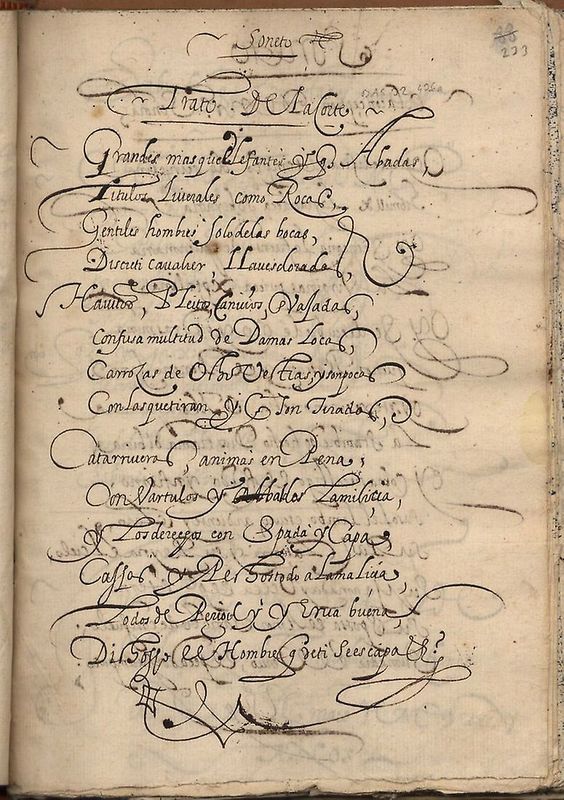 Soneto
88
233
Trato De La Corte
Grandes mas que elefantes y q Abadas,
Titulos liverales como Rocas,
Gentiles hombres solo de las bocas,
Discreti cavalier, llaves doradas,
Havitos, Pleitos,
Confusa multitud de Damas locas,
Carrozas de Ocho Vestias, y son pocas
Con las que tiran y q son tiradas,
Catarriveras, animas en Pena,
Con Vartulos y Abbades la milicia,
y Los derechos con Espada y Capa,
Cassas y Pechos todo a la malicia,
Lodos de Perejil y Yerva buena,
Dichosso el Hombre q de ti se escapa